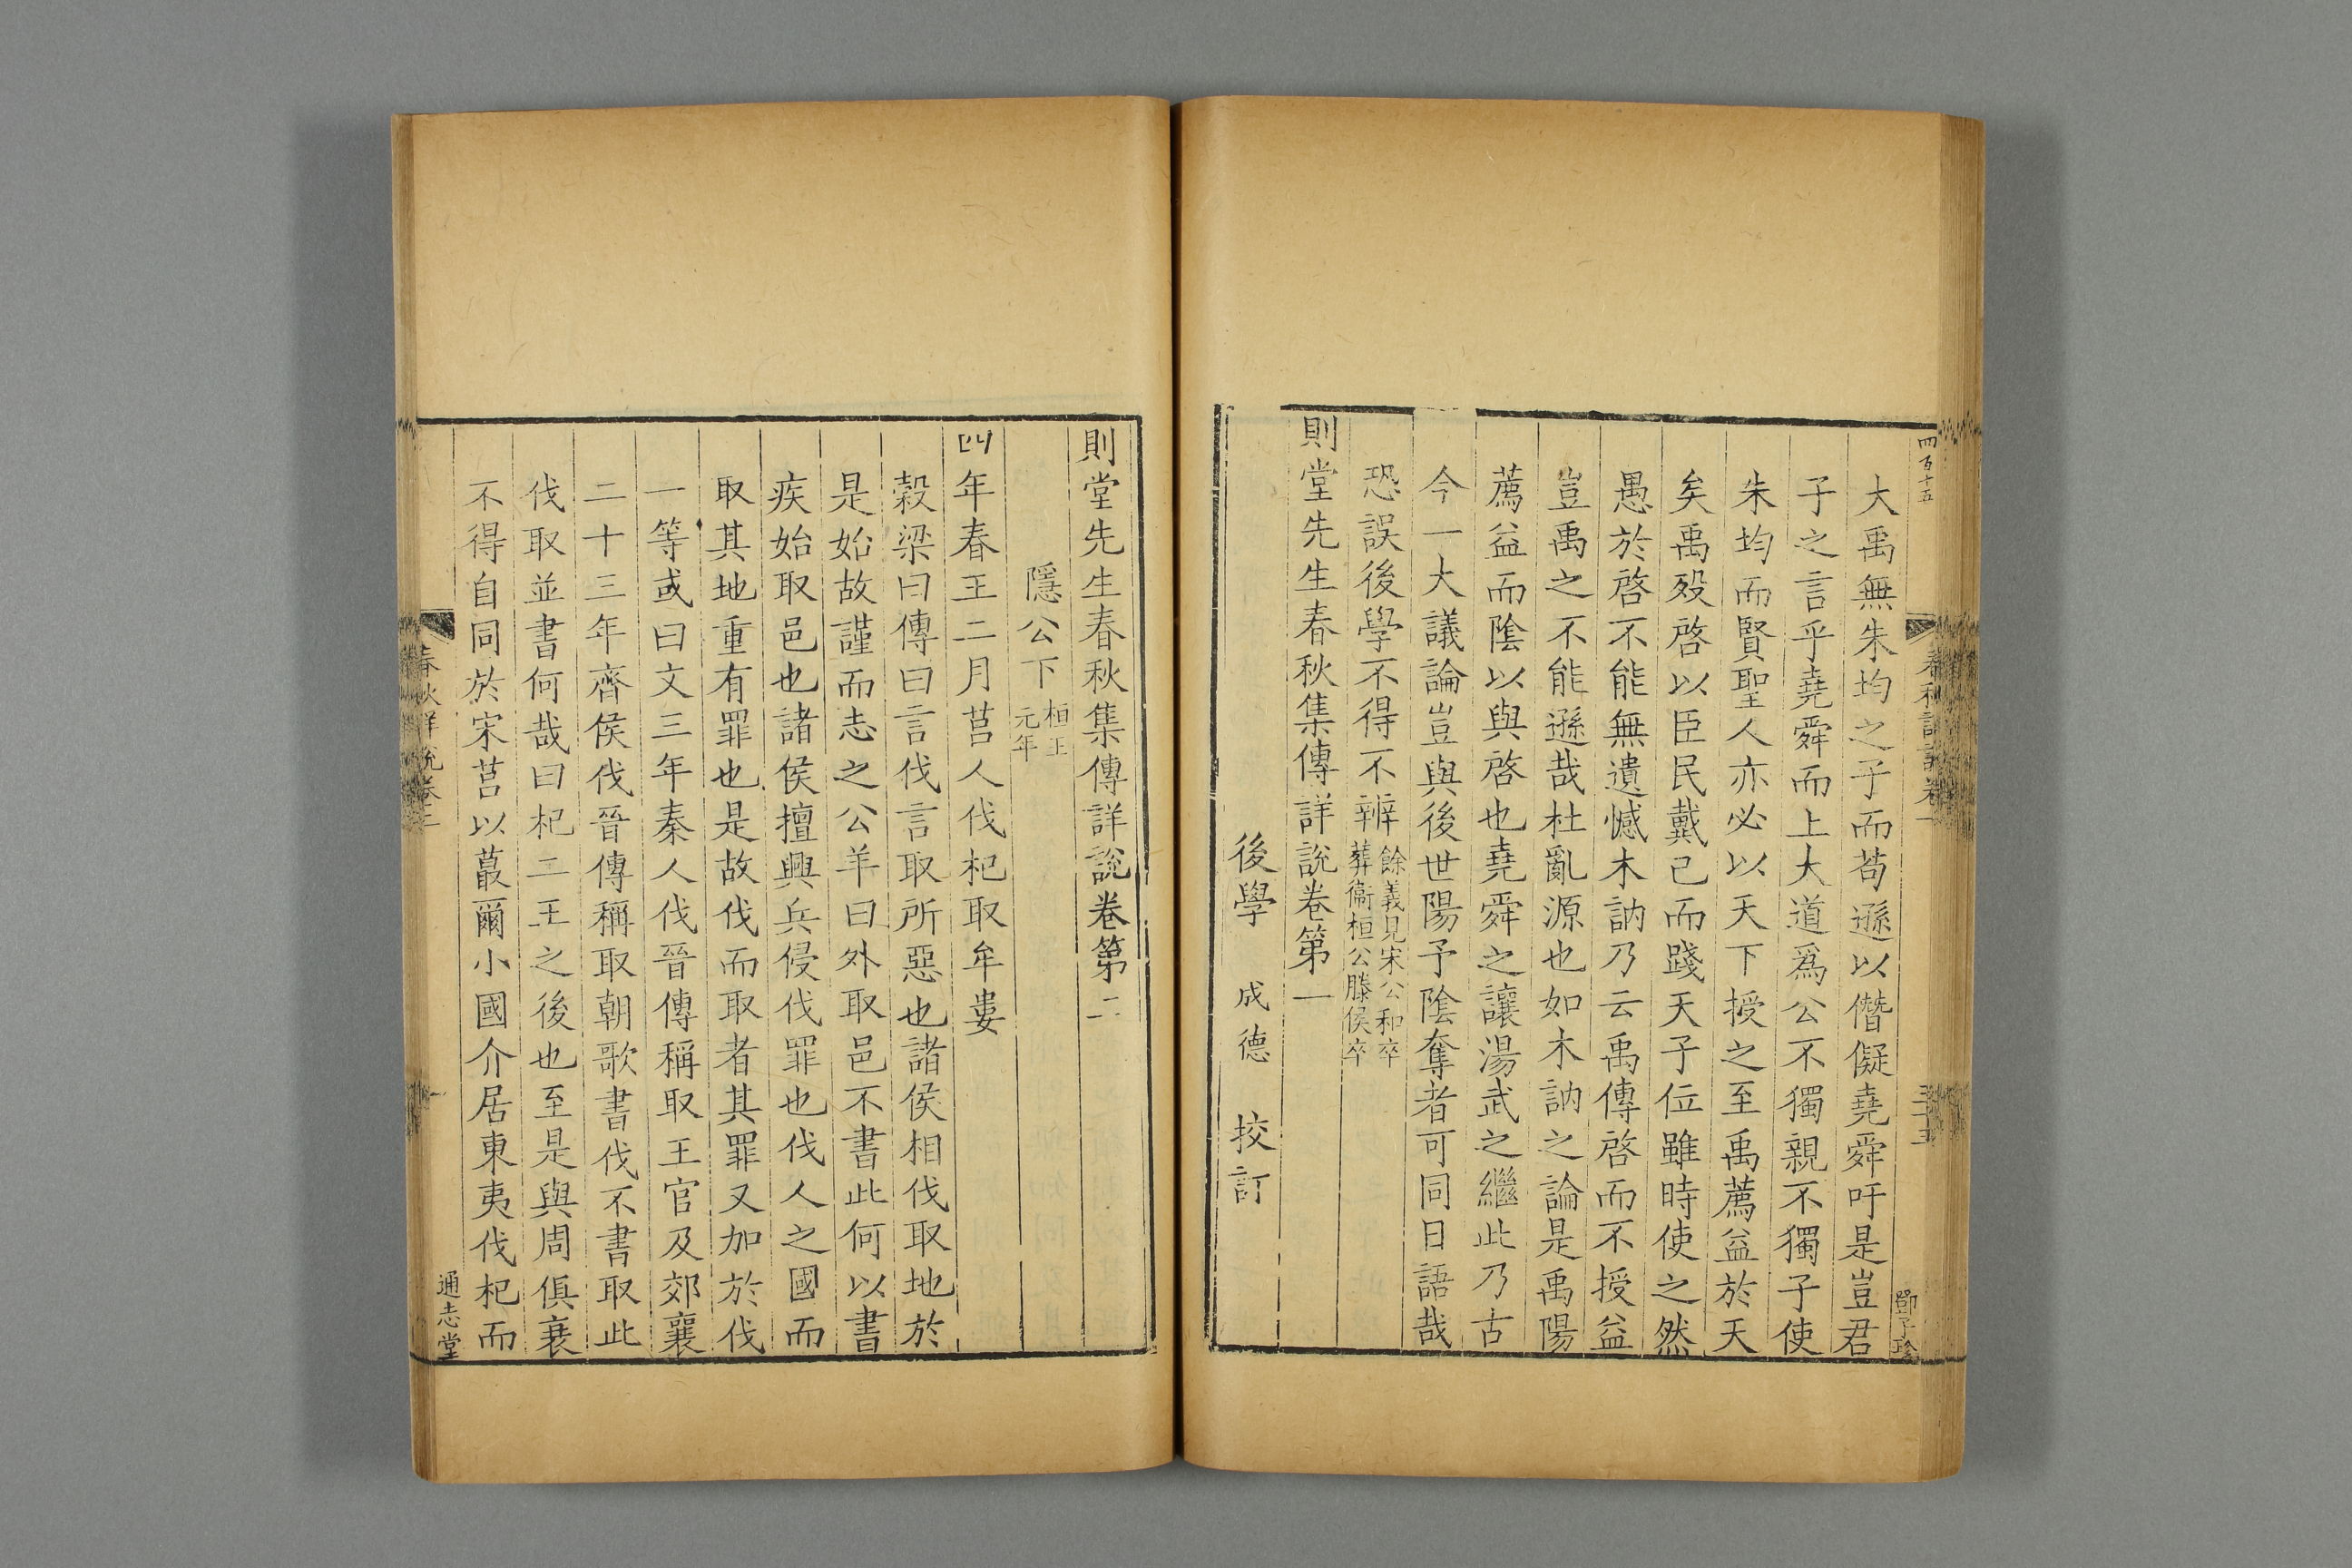 四百十五
大禹無朱均之子而苟遜以僭儗堯舜吁是豈君
子之言乎堯舜而上大道爲公不獨親不獨子使
朱均而賢聖人亦必以天下授之至禹薦益於天
矣禹歿啓以臣民戴己而踐天子位雖時使之然
愚於啓不能無遺憾木訥乃云禹傳啓而不授益
豈禹之不能遜哉杜亂源也如木訥之論是禹陽
薦益而陰以與啓也堯舜之讓湯武之繼此乃古
今一大議論豈與後世陽予陰奪者可同日語哉
恐誤後學不得不辨
餘義見宋公和卒
葬衞桓公滕侯卒
則堂先生春秋集傳詳說卷第一
後學 成德 挍訂
鄧子珍
則堂先生春秋集傳詳說卷第二
隱公下
桓王
元年
四年春王二月莒人伐杞取牟婁
穀梁曰傳曰言伐言取所惡也諸侯相伐取地於
是始故謹而志之公羊曰外取邑不書此何以書
疾始取邑也諸侯擅興兵侵伐罪也伐人之國而
取其地重有罪也是故伐而取者其罪又加於伐
一等或曰文三年秦人伐晉傳稱取王官及郊襄
二十三年齊侯伐晉傳稱取朝歌書伐不書取此
伐取並書何哉曰杞二王之後也至是與周俱衰
不得自同於宋莒以蕞爾小國介居東夷伐杞而
春秋詳說卷二
一
通志堂